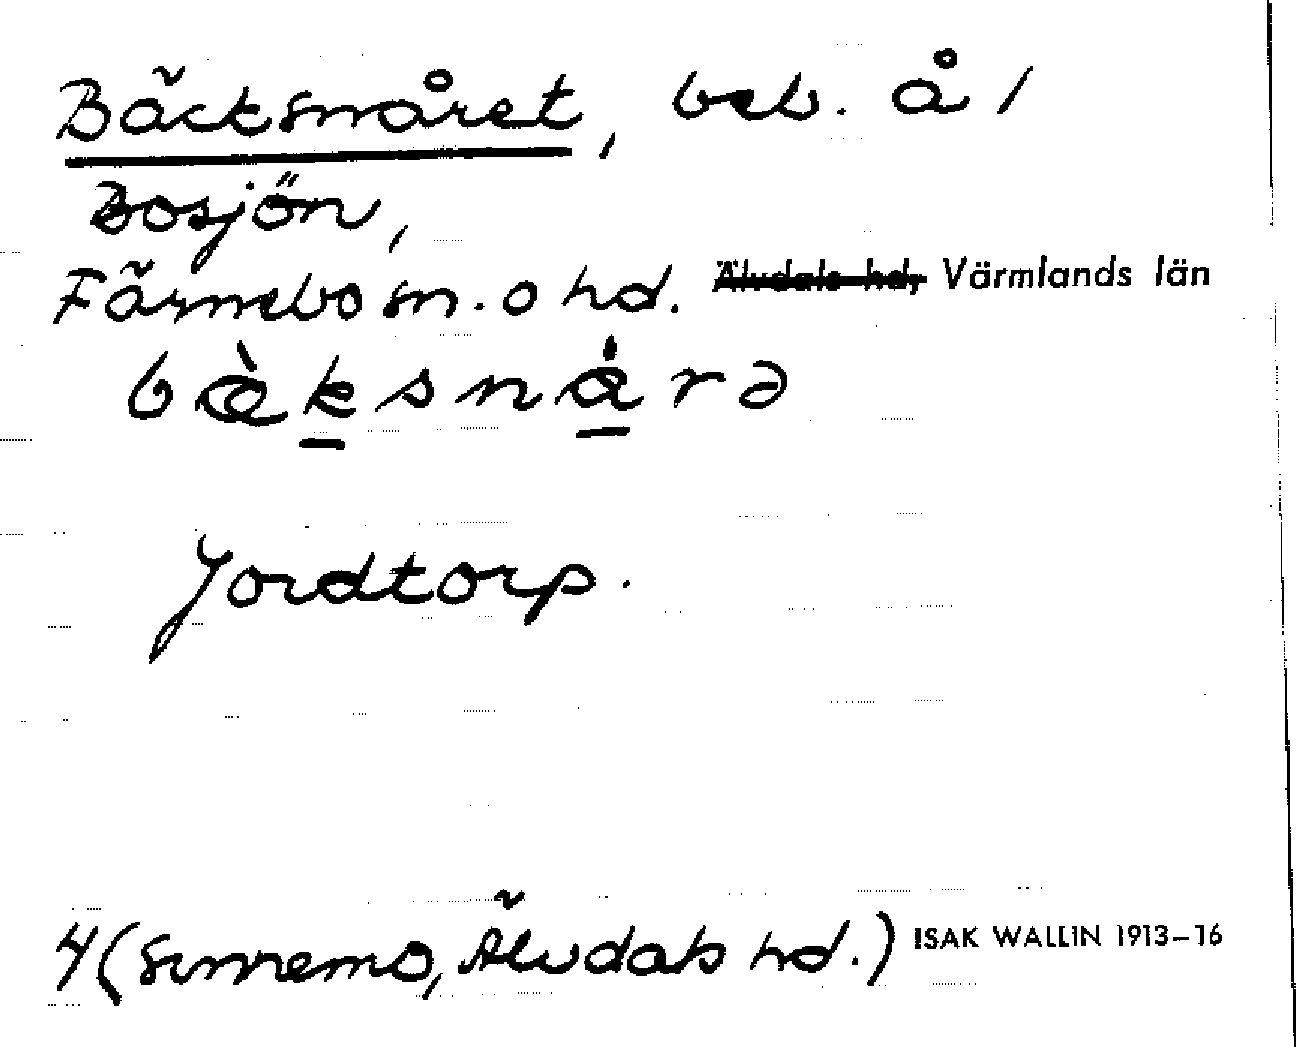 Bäcksnåret, beb. å 1
Bosjön,
Färnebo sn. o hd. Älvdals hd, Värmlands län
Jordtorp.
4 (Sunnemo, Älvdals hd.) ISAK WALLIN 1913–16